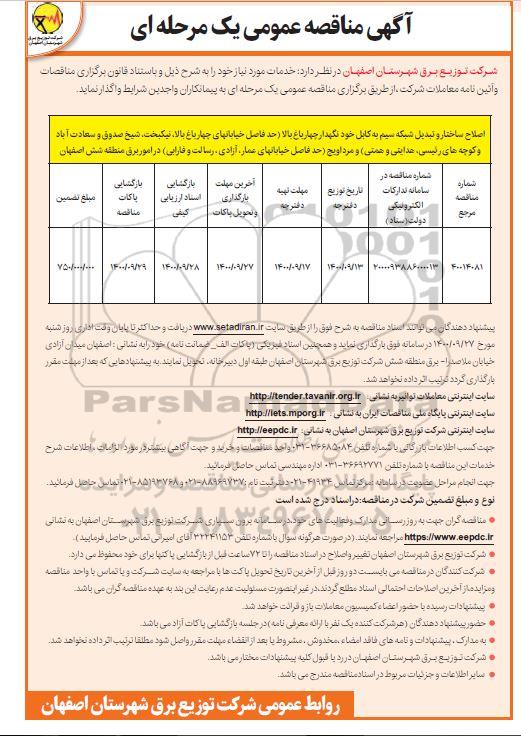 آگهی مناقصه عمومی یک مرحله ای
شرکت توزیع برق
شهرستان اصفهان
شرکت توزیع برق شهرستان اصفهان در نظر دارد: خدمات مورد نیاز خود را به شرح ذیل و باستناد قانون برگزاری مناقصات
وآئین نامه معاملات شرکت ،از طریق برگزاری مناقصه عمومی یک مرحله ای به پیمانکاران واجدین شرایط واگذار نماید.
اصلاح ساختار و تبدیل شبکه سیم به کابل خود نگهدار چهارباغ بالا (حد فاصل خیابانهای چهارباغ بالا، نیکبخت، شیخ صدوق و سعادت آباد
و کوچه های رئیسی، هدایتی و همتی) و مرداویج (حد فاصل خیابانهای عمار، آزادی، رسالت و فارابی) در امور برق منطقه شش اصفهان
شماره مناقصه مرجع | شماره مناقصه در سامانه تدارکات الکترونیکی دولت(ستاد) | تاریخ توزیع دفترچه | مهلت تهیه دفترچه | آخرین مهلت بارگذاری وتحویل پاکات | بازگشایی اسناد ارزیابی کیفی | بازگشایی پاکات مناقصه | مبلغ تضمین
۴۰۰۱۴۰۸۱ | ۲۰۰۰۰۹۳۸۸۶۰۰۰۰۱۳ | ۱۴۰۰/۰۹/۱۳ | ۱۴۰۰/۰۹/۱۷ | ۱۴۰۰/۰۹/۲۷ | ۱۴۰۰/۰۹/۲۸ | ۱۴۰۰/۰۹/۲۹ | ۷۵۰/۰۰۰/۰۰۰
پیشنهاد دهندگان می توانند اسناد مناقصه به شرح فوق را از طریق سایت www.setadiran.ir دریافت و حداکثر تا پایان وقت اداری روز شنبه
مورخ ۱۴۰۰/۰۹/۲۷ در سامانه فوق بارگذاری نماید و همچنین اسناد فیزیکی (پاکات الف_ضمانت نامه) خود رابه نشانی : اصفهان میدان آزادی
خیابان ملاصدرا- برق منطقه شش شرکت توزیع برق شهرستان اصفهان طبقه اول دبیرخانه، تحویل نمایند.به پیشنهادهایی که بعد از مهلت مقرر
بارگذاری گردد ترتیب اثر داده نخواهد شد.
سایت اینترنتی معاملات توانیر به نشانی : http://tender.tavanir.org.ir
سایت اینترنتی پایگاه ملی مناقصات ایران به نشانی : http://iets.mporg.ir
سایت اینترنتی شرکت توزیع برق شهرستان اصفهان به نشانی: http://eepdc.ir
جهت کسب اطلاعات بازرگانی با شماره تلفن ۳۶۶۸۵۰۸۴-۰۳۱ واحد مناقصات و خرید و جهت آگاهی بیشتر در مورد الزامات ، اطلاعات شرح
خدمات این مناقصه با شماره تلفن ۳۶۶۹۲۷۷۱-۰۳۱ اداره مهندسی تماس حاصل فرمائید.
جهت انجام مراحل عضویت در سامانه :مرکز تماس ۴۱۹۳۴-۰۲۱ دفتر ثبت نام :۸۸۹۶۹۷۳۷-۰۲۱ و ۸۵۱۹۳۷۶۸-۰۲۱ تماس حاصل فرمائید.
نوع و مبلغ تضمین شرکت در مناقصه: در اسناد درج شده است
● مناقصه گران جهت به روز رسانی مدارک وفعالیت های خود،در سامانه برون سپاری شرکت توزیع برق شهرستان اصفهان به نشانی
https://www.eepdc.ir مراجعه نمایند. (در صورت هرگونه سوال با شماره تلفن ۳۲۲۴۱۱۵۳ آقای امیرانی تماس حاصل فرمایید).
● شرکت توزیع برق شهرستان اصفهان تغییر واصلاح در اسناد مناقصه را تا ۷۲ ساعت قبل از بازگشایی پاکتها برای خود محفوظ می دارد.
● شرکت کنندگان در مناقصه می بایست دو روز قبل از آخرین تاریخ تحویل پاکت ها با مراجعه به سایت شرکت و یا تماس با واحد مناقصه
ومزایده،از آخرین اصلاحات احتمالی اسناد مطلع گردند،در غیر اینصورت مسئولیت عدم رعایت این بند به عهده مناقصه گران می باشد.
● پیشنهادات رسیده با حضور اعضاء کمیسیون معاملات باز و قرائت خواهد شد.
● حضور پیشنهاد دهندگان (هر شرکت کننده یک نفر با ارائه معرفی نامه) در جلسه بازگشایی پاکات آزاد می باشد.
● به مدارک ، پیشنهادات و نامه های فاقد امضاء ،مخدوش ، مشروط یا بعد از انقضاء مهلت مقرر واصل شود مطلقا ترتیب اثر داده نخواهد شد.
● شرکت توزیع برق شهرستان اصفهان در رد یا قبول کلیه پیشنهادات مختار می باشد.
● سایر اطلاعات و جزئیات مربوط در اسناد مناقصه مندرج می باشد.
روابط عمومی شرکت توزیع برق شهرستان اصفهان